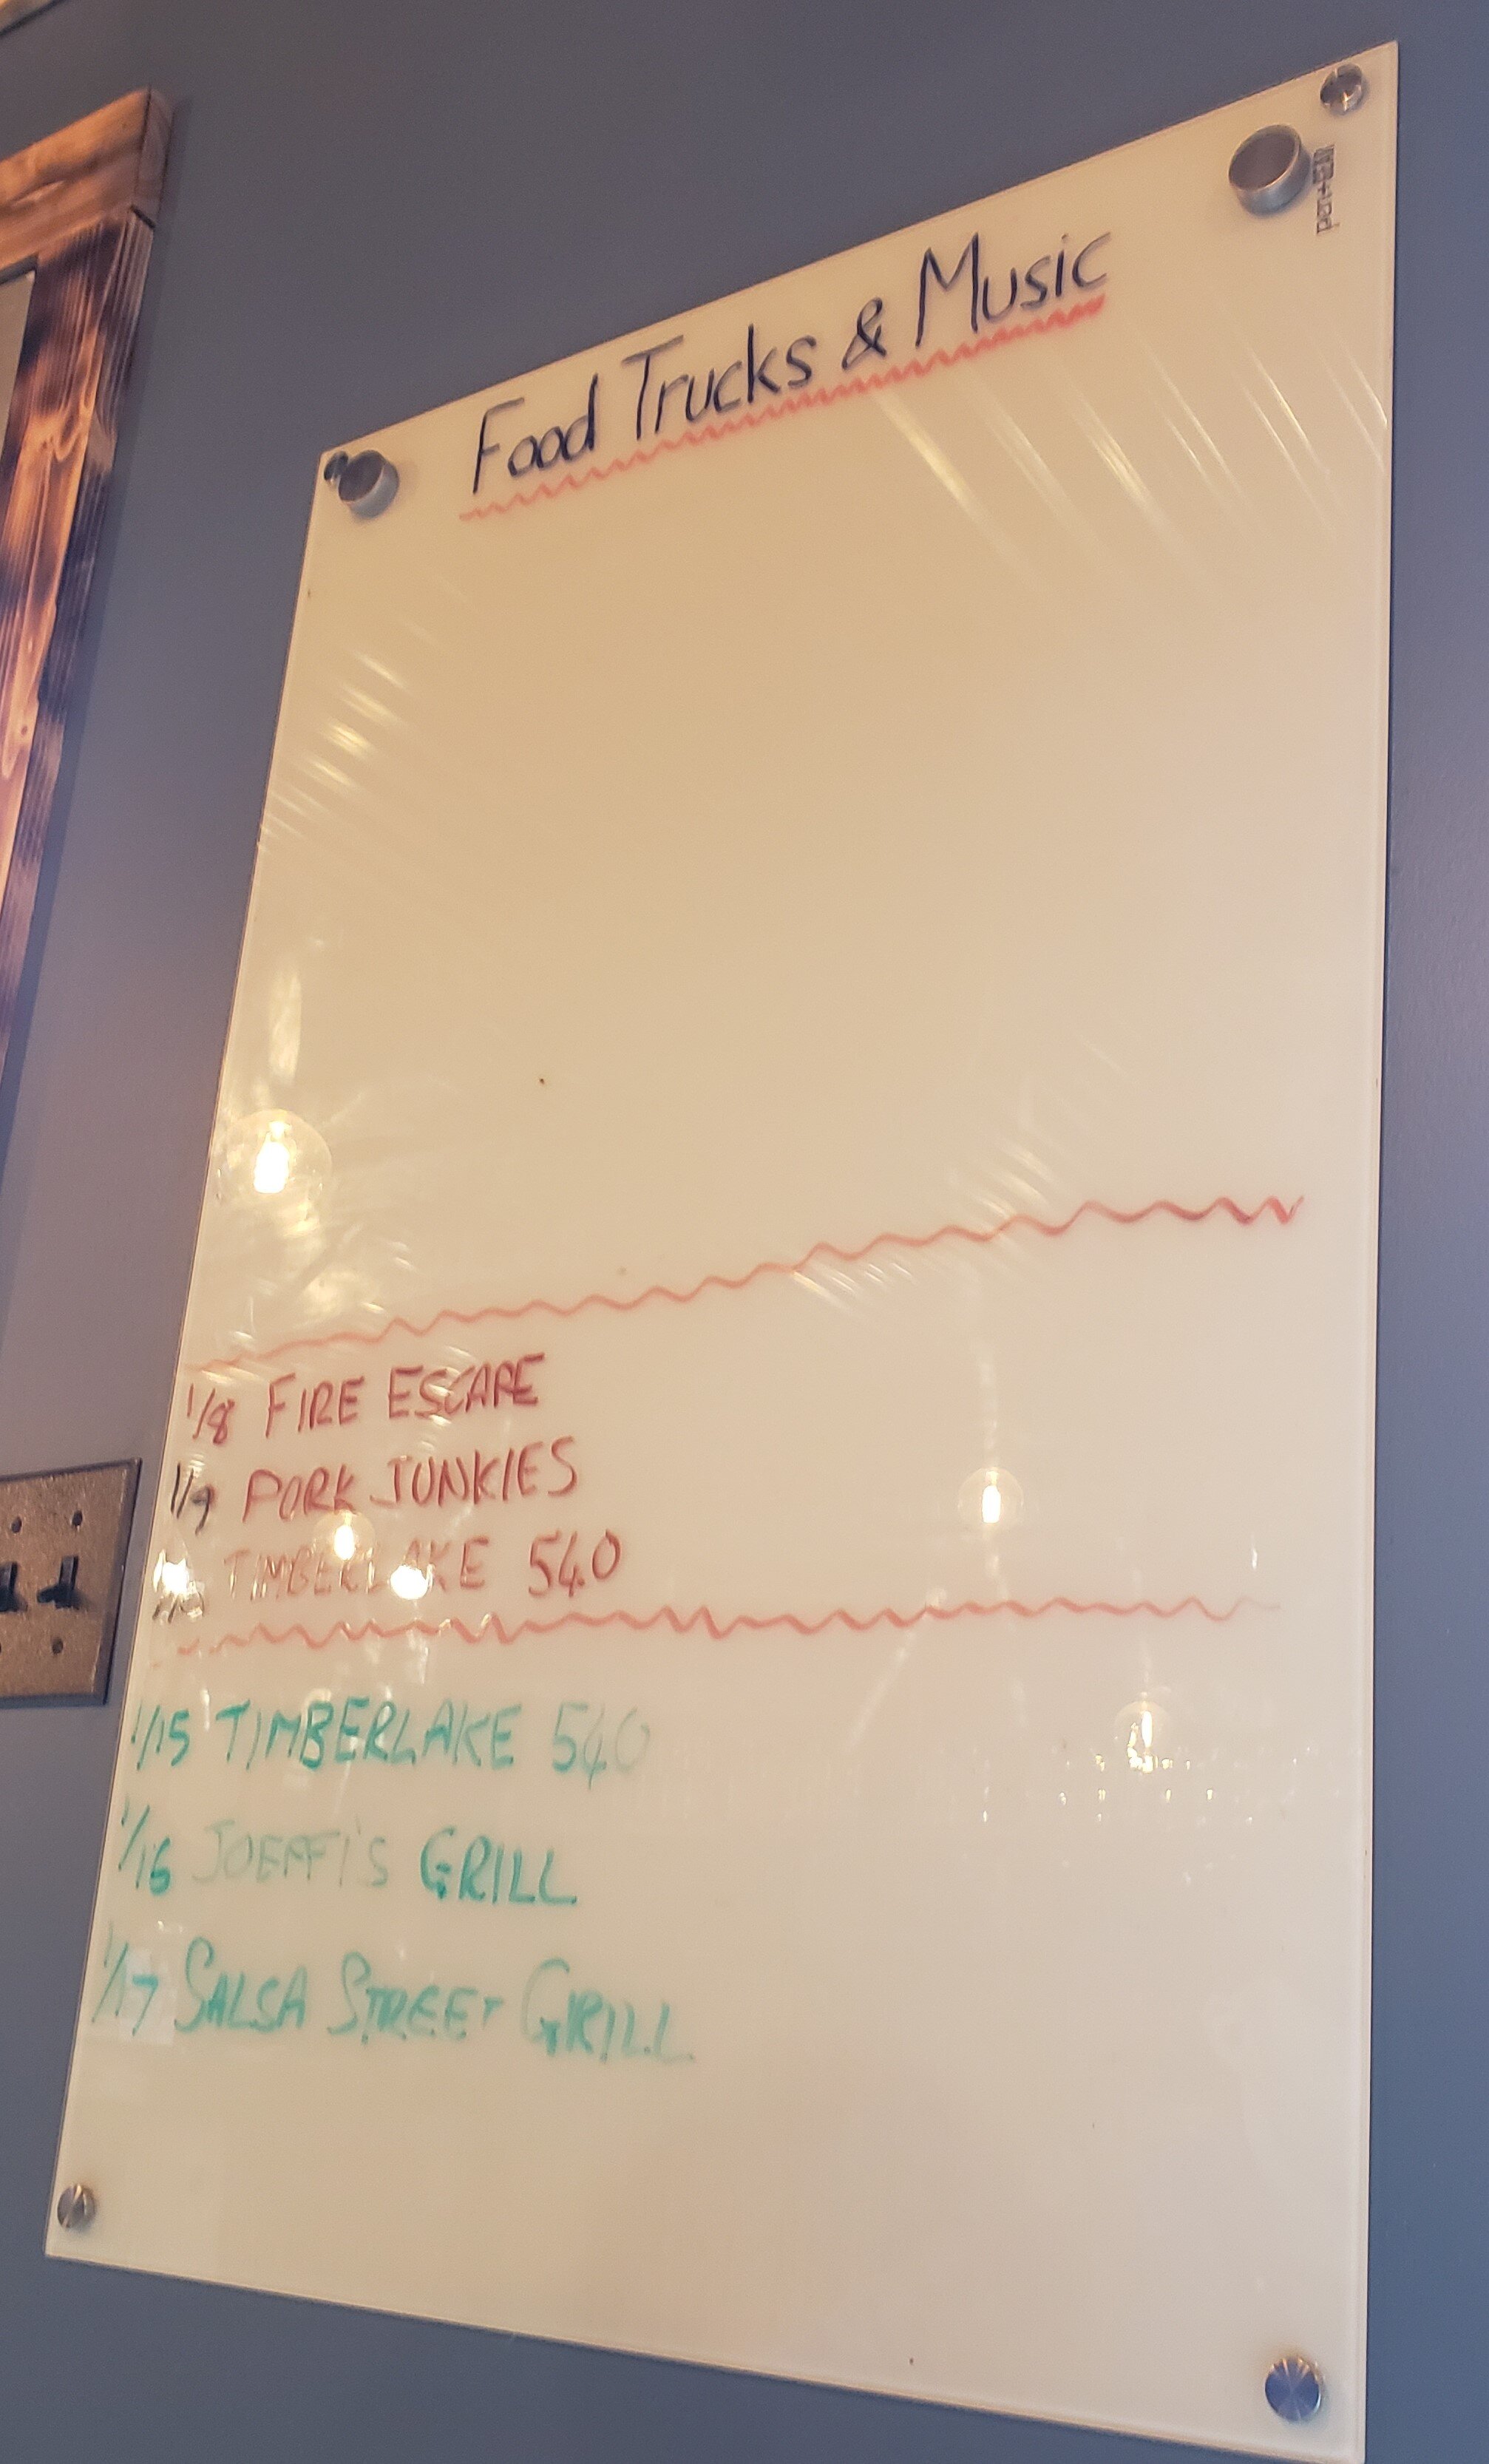 Food Trucks & Music
1/8 FIRE ESCAPE
1/9 PORK JUNKIES
TIMBERLAKE 540
1/15 TIMBERLAKE 540
1/16 JOEFFI'S GRILL
1/17 SALSA STREET GRILL